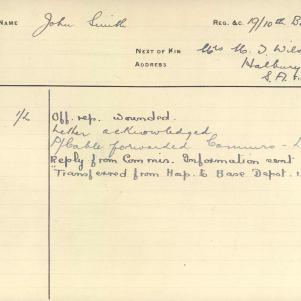 NAME John Smith REG. &C. 19/10th B
NEXT OF KIN Mrs M. J. Wils
ADDRESS Halbury
S. A.
1/2 Off. rep. wounded.
Letter acknowledged
P/Cable forwarded Commrs -
Reply from Commis. Information sent
"Transferred from Hop. to Base Depot.